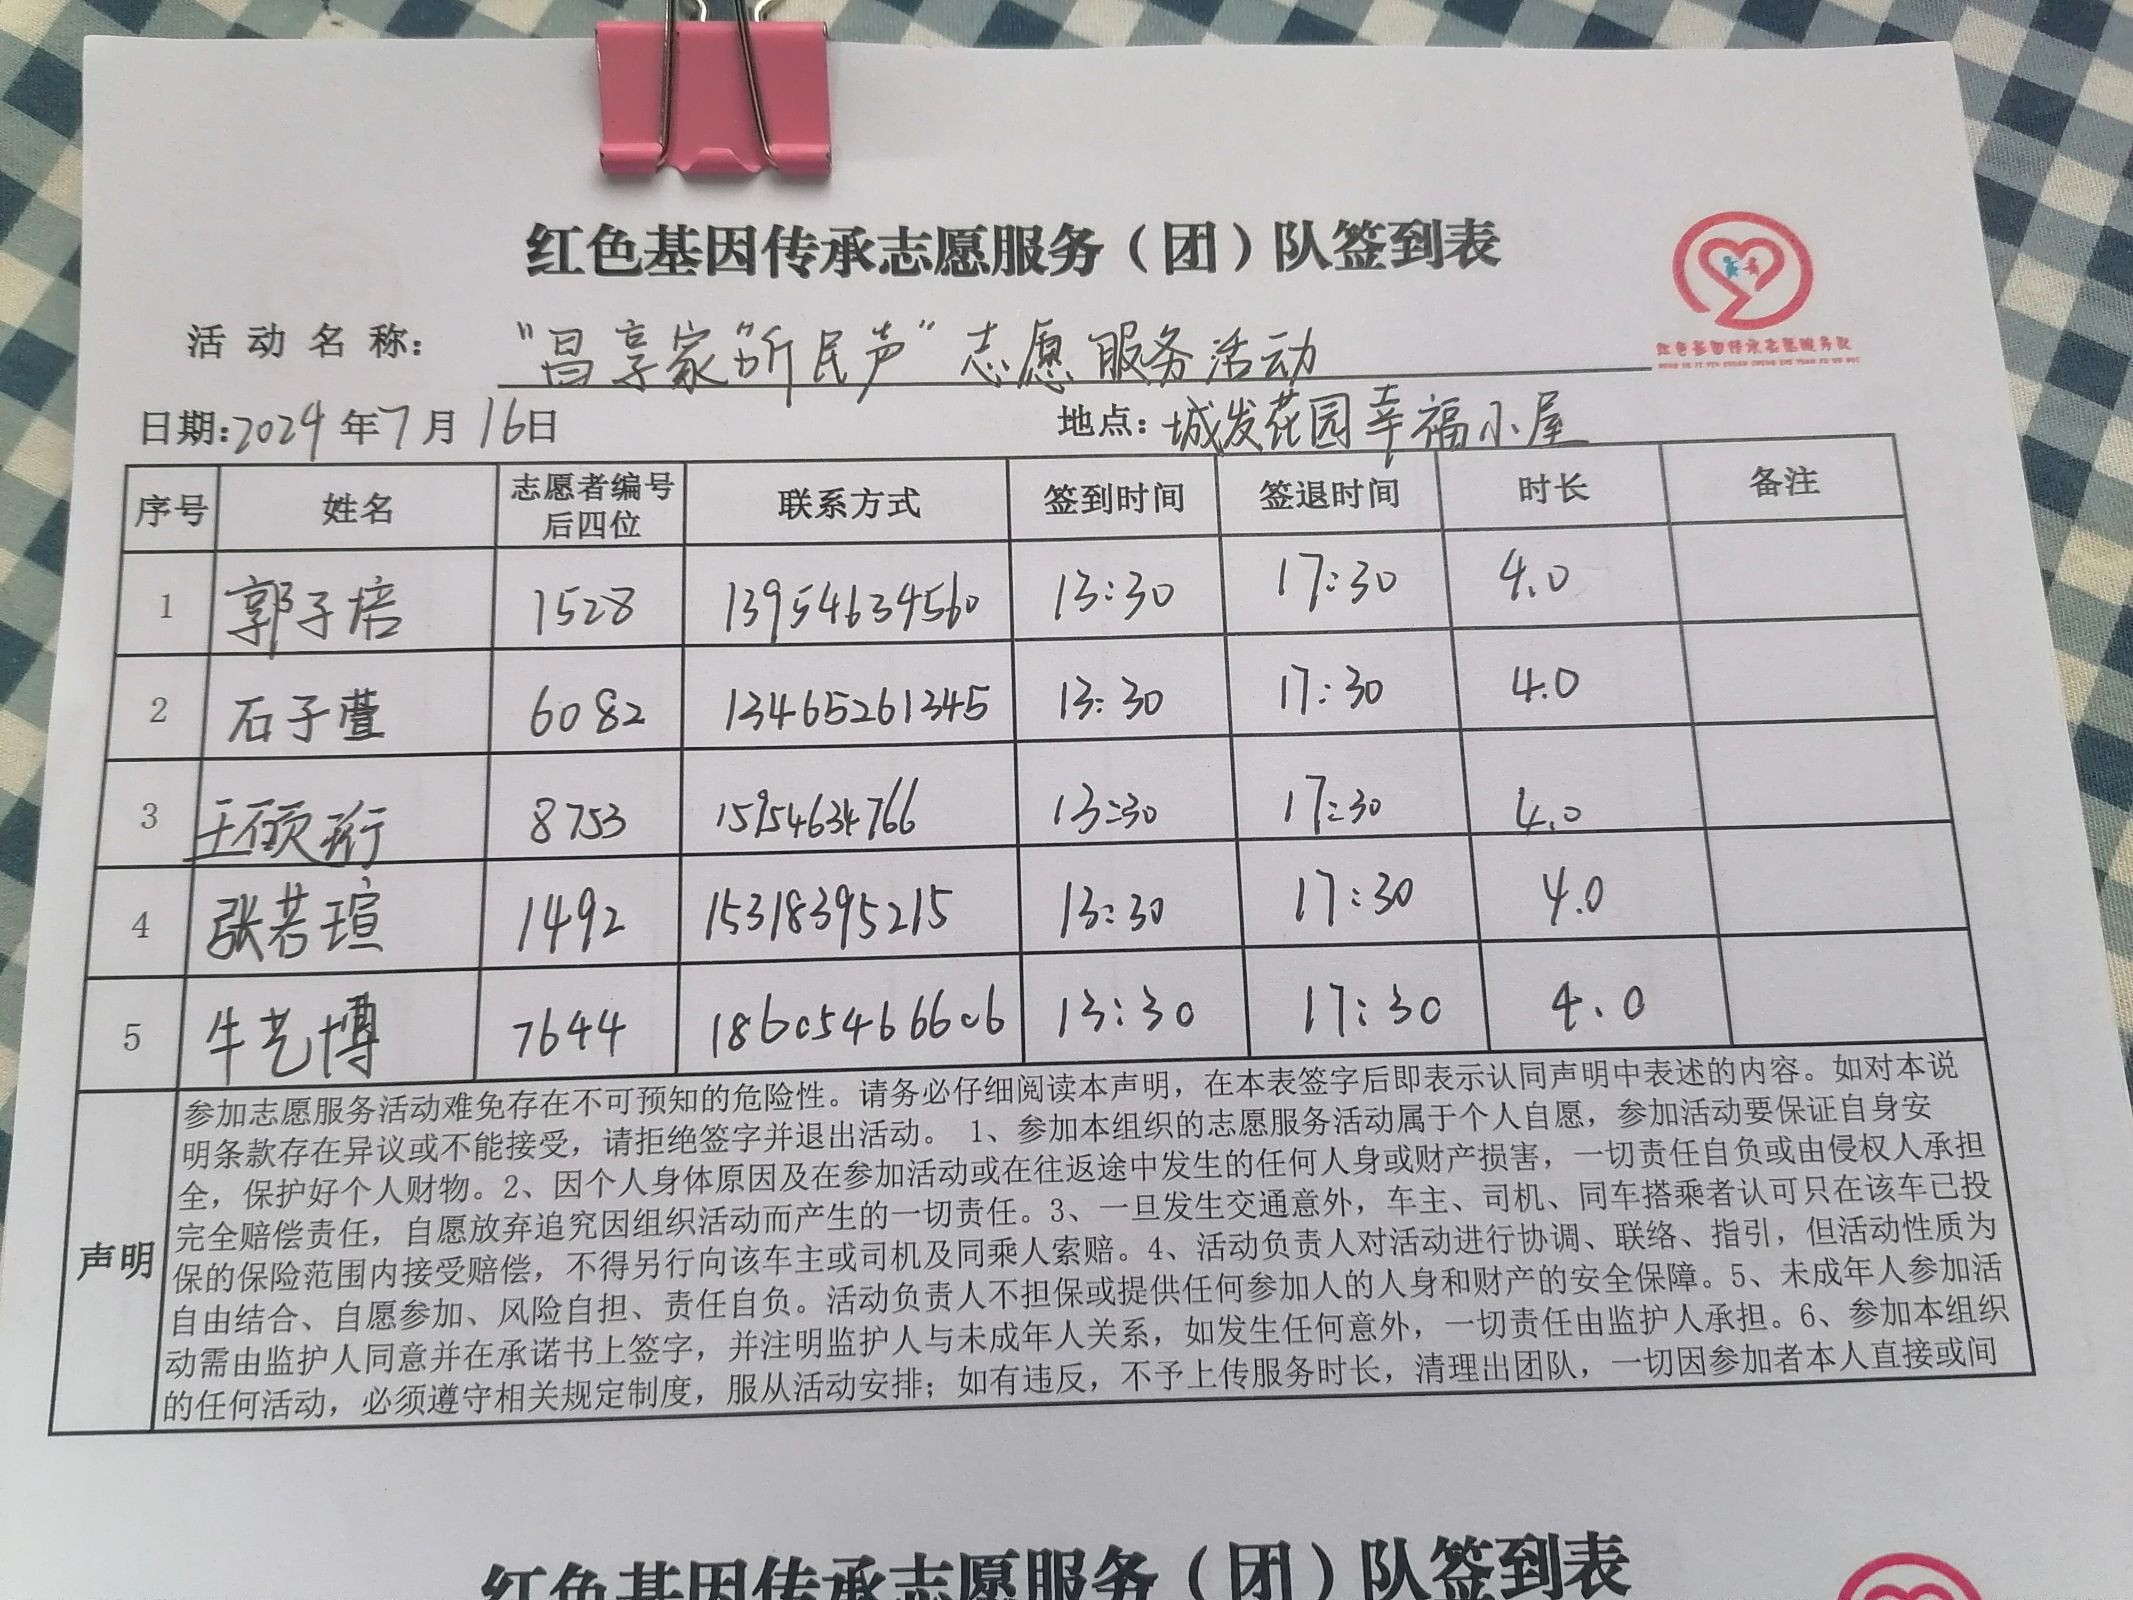 红色基因传承志愿服务（团）队签到表
活动名称： “昌享家”听民声”志愿服务活动
红色基因传承志愿服务队
日期：2024年7月16日 地点：城发花园幸福小屋
序号 姓名 志愿者编号后四位 联系方式 签到时间 签退时间 时长 备注
1 郭子培 1528 13954634560 13:30 17:30 4.0
2 石子萱 6082 13465261345 13:30 17:30 4.0
3 王硕珩 8753 15954634766 13:30 17:30 4.0
4 张若瑄 1492 15318395215 13:30 17:30 4.0
5 牛艺博 7644 18605466606 13:30 17:30 4.0
声明
参加志愿服务活动难免存在不可预知的危险性。请务必仔细阅读本声明，在本表签字后即表示认同声明中表述的内容。如对本说
明条款存在异议或不能接受，请拒绝签字并退出活动。 1、参加本组织的志愿服务活动属于个人自愿，参加活动要保证自身安
全，保护好个人财物。2、因个人身体原因及在参加活动或在往返途中发生的任何人身或财产损害，一切责任自负或由侵权人承担
完全赔偿责任，自愿放弃追究因组织活动而产生的一切责任。3、一旦发生交通意外，车主、司机、同车搭乘者认可只在该车已投
保的保险范围内接受赔偿，不得另行向该车主或司机及同乘人索赔。4、活动负责人对活动进行协调、联络、指引，但活动性质为
自由结合、自愿参加、风险自担、责任自负。活动负责人不担保或提供任何参加人的人身和财产的安全保障。5、未成年人参加活
动需由监护人同意并在承诺书上签字，并注明监护人与未成年人关系，如发生任何意外，一切责任由监护人承担。6、参加本组织
的任何活动，必须遵守相关规定制度，服从活动安排；如有违反，不予上传服务时长，清理出团队，一切因参加者本人直接或间
红色基因传承志愿服务（团）队签到表